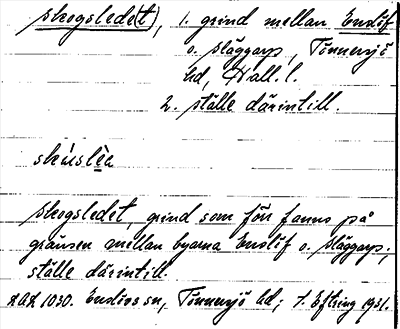 skogslede(t), 1. grind mellan Enslöf
o. Släggarp, Tönnersjö
hd, Hall. l.
2. ställe därintill.
skúslèa
Skogsledet, grind som förr fanns på
gränsen mellan byarna Enslöf o. Släggarp;
ställe därintill.
1030. Enslövs sn, Tönnersjö hd; 1931.